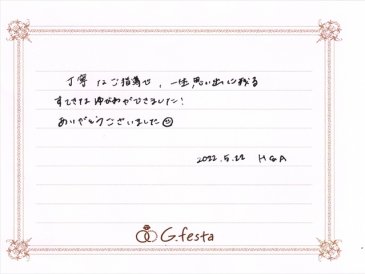 丁寧なご指導で、一生思い出に残る
すてきなゆびわができました！
ありがとうございました☺
2022.5.22 H&A
G.festa